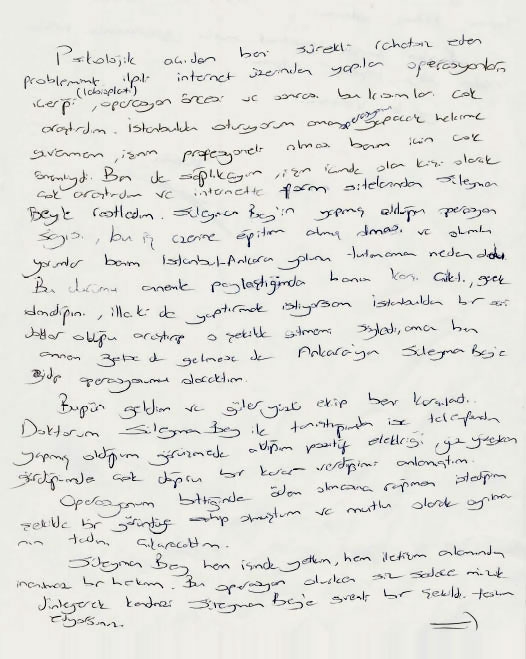 Psikolojik açıdan beni sürekli rahatsız eden
problemimle ilgili internet üzerinden yapılan operasyonların
(labioplasti)
içeriği, operasyon öncesi ve sonrası bu kısımları çok
araştırdım. İstanbulda oturuyorum ama operasyonu yapacak hekime
güvenmem, işinin profesyoneli olması benim için çok
önemliydi. Ben de sağlıkçıyım, işin içinde olan kişi olarak
çok araştırdım ve internette form sitelerinden Süleyman
Beyle rastladım. Süleyman Bey'in yapmış olduğu operasyon
sayısı, bu iş üzerine eğitim almış olması ve olumlu
yorumlar benim İstanbul-Ankara yolunu tutmama neden oldu.
Bu durumu annemle paylaştığımda bana karşı çıktı, gerek
olmadığını, illa ki de yaptırmak istiyorsan istanbulda bir
doktor olduğu araştırıp o şekilde gitmemi söyledi, ama ben
annem gelmese de Ankara'ya Süleyman Bey'e
gidip operasyonumu olacaktım.
Bugün geldim ve güler yüzlü ekip beni karşıladı.
Doktorum Süleyman Bey ile tanıştığımda ise telefonda
yapmış olduğum görüşmede aldığım pozitif elektriği, yüz yüzeyken
gördüğümde çok doğru bir karar verdiğimi anlamıştım.
Operasyonum bittiğinde ödem olmasına rağmen istediğim
şekilde bir görüntüye sahip olmuştum ve mutlu olarak
nın tadını çıkaracaktım.
Süleyman Bey hem işinde yetkin, hem iletişim alanında
inanılmaz bir hekim. Bu operasyon olurken siz sadece müzik
dinleyerek kendinizi Süleyman Bey'e güvenli bir şekilde teslim
ediyorsunuz.